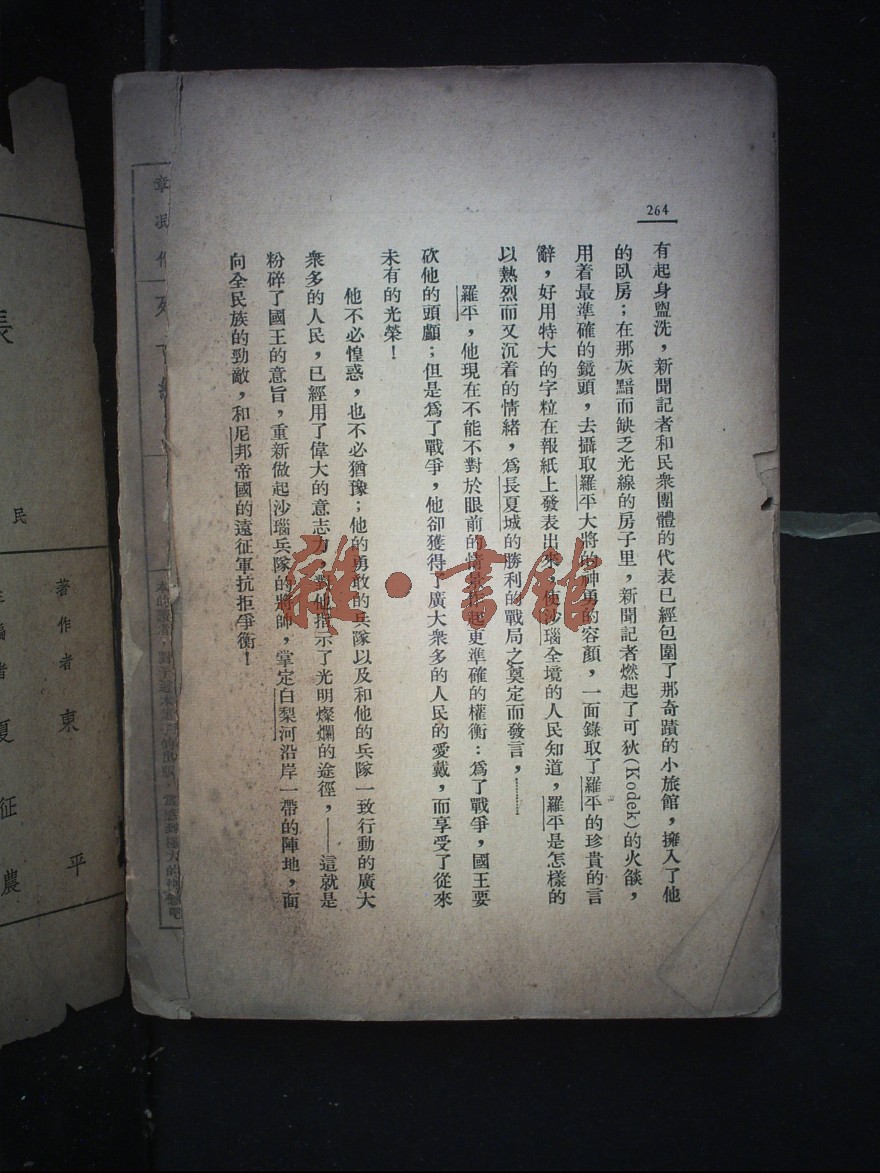 264
有起身盥洗，新聞記者和民衆團體的代表已經包圍了那奇蹟的小旅館，擁入了他
的臥房；在那灰黯而缺乏光線的房子里，新聞記者燃起了可狄(Kodek)的火燄，
用着最準確的鏡頭，去攝取羅平大將的神勇的容顏，一面錄取了羅平的珍貴的言
辭，好用特大的字粒在報紙上發表出來，使沙瑙全境的人民知道，羅平是怎樣的
以熱烈而又沉着的情緒，爲長夏城的勝利的戰局之奠定而發言，…………
羅平，他現在不能不對於眼前的情景作起更準確的權衡：爲了戰爭，國王要
砍他的頭顱；但是爲了戰爭，他卻獲得了廣大衆多的人民的愛戴，而享受了從來
未有的光榮！
他不必惶惑，也不必猶豫；他的勇敢的兵隊以及和他的兵隊一致行動的廣大
衆多的人民，已經用了偉大的意志力，對他指示了光明燦爛的途徑，——這就是
粉碎了國王的意旨，重新做起沙瑙兵隊的將師，掌定白梨河沿岸一帶的陣地，面
向全民族的勁敵，和尼邦帝國的遠征軍抗拒爭衡！
雜·書館
長
民
著作者東平
編者夏征農